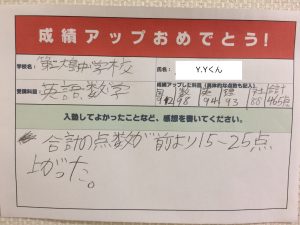 成績アップおめでとう!
学校名:
氏名: Y.Yくん
受講科目: 英語、数学
成績アップした科目(具体的な点数も記入)
98 94 93 88 465点
入塾してよかったことなど、感想を書いてください。
合計の点数が前より15~25点
上がった。